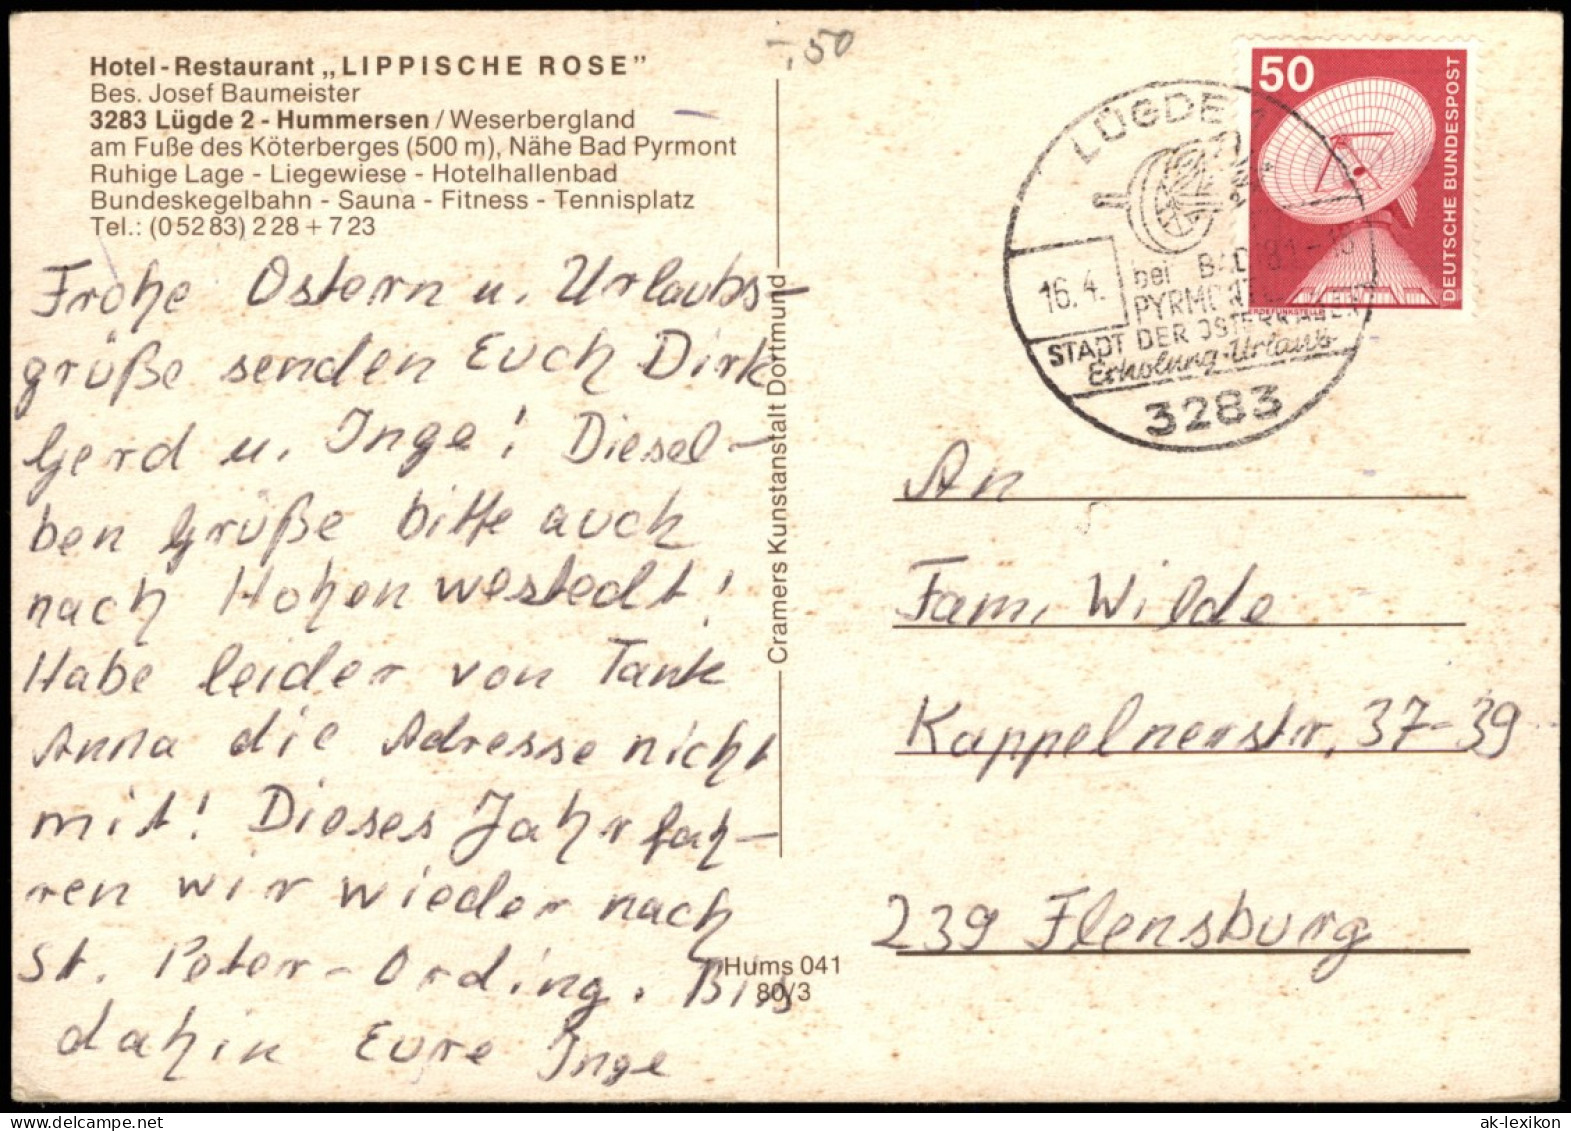 -,50
Hotel-Restaurant „LIPPISCHE ROSE"
Bes. Josef Baumeister
3283 Lügde 2 - Hummersen / Weserbergland
am Fuße des Köterberges (500 m), Nähe Bad Pyrmont
Ruhige Lage - Liegewiese - Hotelhallenbad
Bundeskegelbahn - Sauna - Fitness - Tennisplatz
Tel.: (05283) 228 + 723
Frohe Ostern u. Urlaubs-
grüße senden Euch Dirk
Gerd u. Inge! Diesel-
ben Grüße bitte auch
nach Hohenwestedt!
Habe leider von Tank
Anna die Adresse nicht
mit! Dieses Jahr fah-
ren wir wieder nach
St. Peter-Ording. Bis
dahin Eure Inge
Cramers Kunstanstalt Dortmund
Hums 041
80/3
50
DEUTSCHE BUNDESPOST
ERDEFUNKSTELLE
LÜGDE 1
16.4.
bei BAD 81-18
PYRMONT
STADT DER OSTERRÄDER
Erholung-Urlaub
3283
An
Fam. Wilde
Kappelnerstr. 37-39
239 Flensburg
ak-lexikon